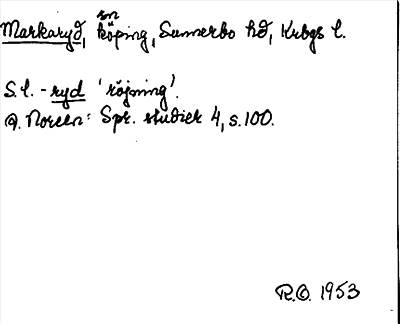 sn
Markaryd, köping, Sunnerbo hd, Krbgs l.
S.l. -ryd 'röjning'.
A. Noreen: Spr. studier 4, s.100.
R.O. 1953